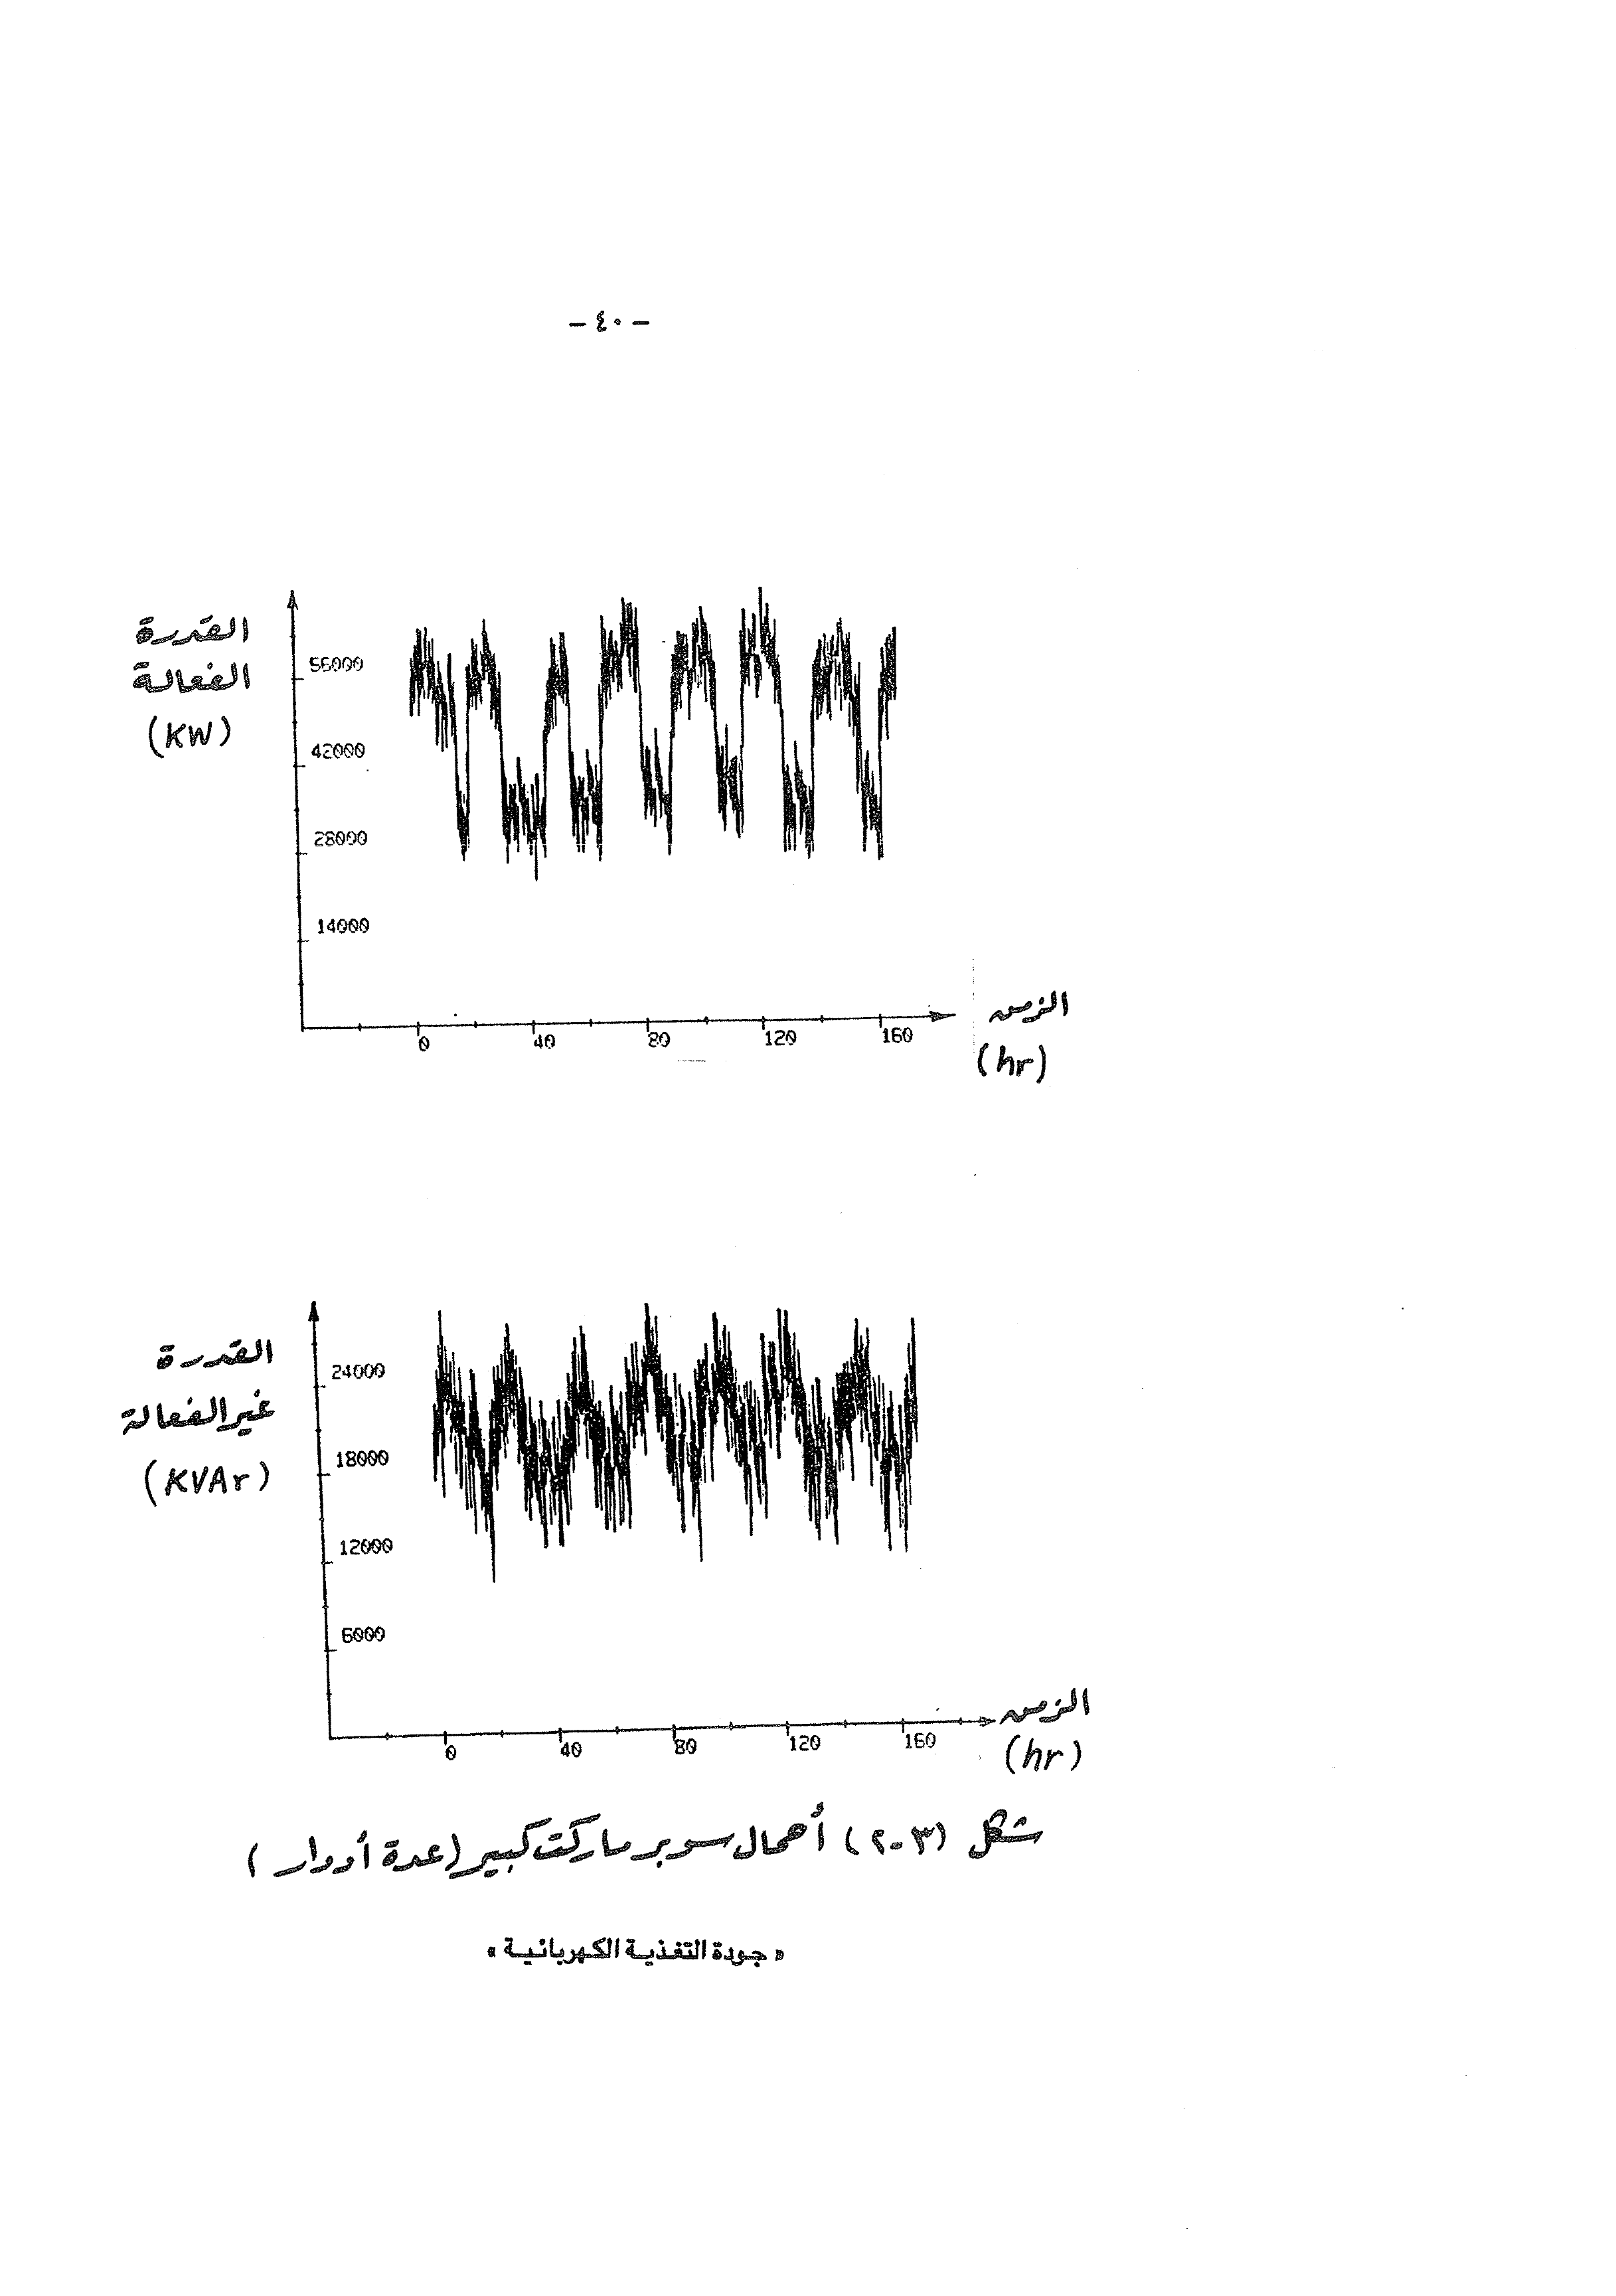 - ٤٠ -
القدرة
الفعالة
(KW)
56000
42000
28000
14000
0 40 80 120 160
الزمن
(hr)
القدرة
غير الفعالة
(KVAr)
24000
18000
12000
6000
0 40 80 120 160
الزمن
(hr)
شكل (٣-٢) أحمال سوبر ماركت كبير (عدة أدوار)
« جودة التغذية الكهربائية »